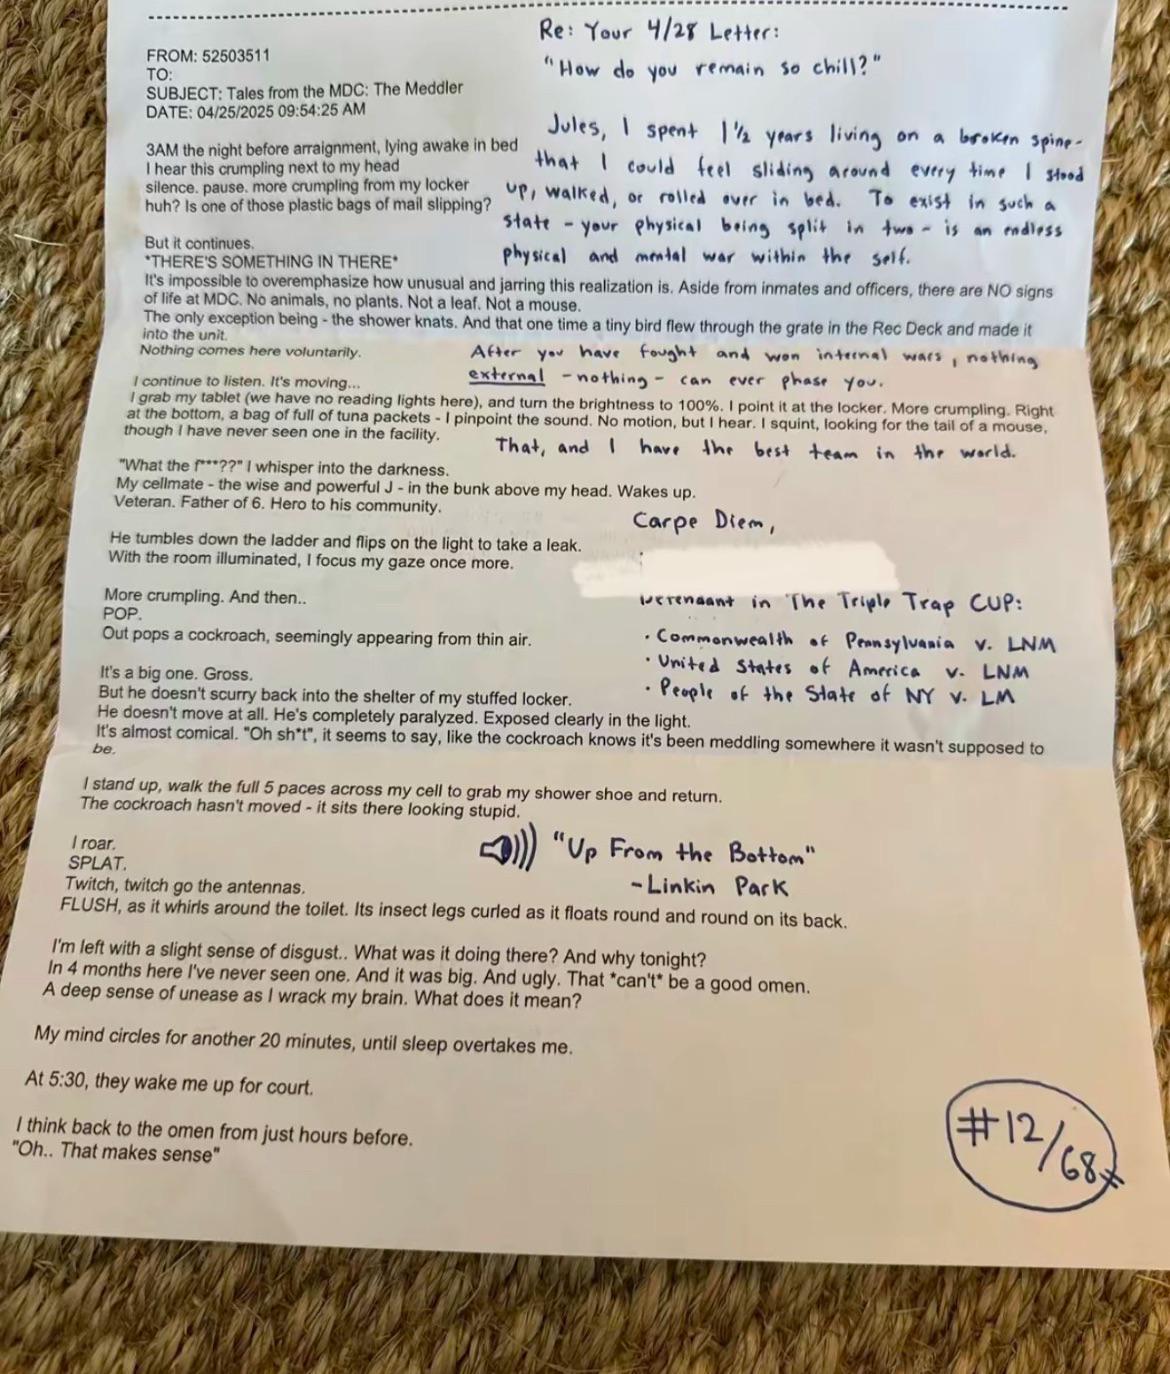 Re: Your 4/28 Letter:
"How do you remain so chill?"
FROM: 52503511
TO:
SUBJECT: Tales from the MDC: The Meddler
DATE: 04/25/2025 09:54:25 AM
Jules, I spent 1½ years living on a broken spine-
that I could feel sliding around every time I stood
up, walked, or rolled over in bed. To exist in such a
state - your physical being split in two - is an endless
physical and mental war within the self.
3AM the night before arraignment, lying awake in bed
I hear this crumpling next to my head
silence. pause. more crumpling from my locker
huh? Is one of those plastic bags of mail slipping?
But it continues.
*THERE'S SOMETHING IN THERE*
It's impossible to overemphasize how unusual and jarring this realization is. Aside from inmates and officers, there are NO signs
of life at MDC. No animals, no plants. Not a leaf. Not a mouse.
The only exception being - the shower knats. And that one time a tiny bird flew through the grate in the Rec Deck and made it
into the unit.
Nothing comes here voluntarily.
After you have fought and won internal wars, nothing
external - nothing - can ever phase you.
I continue to listen. It's moving...
I grab my tablet (we have no reading lights here), and turn the brightness to 100%. I point it at the locker. More crumpling. Right
at the bottom, a bag of full of tuna packets - I pinpoint the sound. No motion, but I hear. I squint, looking for the tail of a mouse,
though I have never seen one in the facility.
That, and I have the best team in the world.
"What the f***??" I whisper into the darkness.
My cellmate - the wise and powerful J - in the bunk above my head. Wakes up.
Veteran. Father of 6. Hero to his community.
Carpe Diem,
He tumbles down the ladder and flips on the light to take a leak.
With the room illuminated, I focus my gaze once more.
More crumpling. And then..
POP.
Out pops a cockroach, seemingly appearing from thin air.
Defendant in The Triple Trap CUP:
· Commonwealth of Pennsylvania v. LNM
· United States of America v. LNM
· People of the State of NY v. LM
It's a big one. Gross.
But he doesn't scurry back into the shelter of my stuffed locker.
He doesn't move at all. He's completely paralyzed. Exposed clearly in the light.
It's almost comical. "Oh sh*t", it seems to say, like the cockroach knows it's been meddling somewhere it wasn't supposed to
be.
I stand up, walk the full 5 paces across my cell to grab my shower shoe and return.
The cockroach hasn't moved - it sits there looking stupid.
"Up From the Bottom"
- Linkin Park
I roar.
SPLAT.
Twitch, twitch go the antennas.
FLUSH, as it whirls around the toilet. Its insect legs curled as it floats round and round on its back.
I'm left with a slight sense of disgust.. What was it doing there? And why tonight?
In 4 months here I've never seen one. And it was big. And ugly. That *can't* be a good omen.
A deep sense of unease as I wrack my brain. What does it mean?
My mind circles for another 20 minutes, until sleep overtakes me.
At 5:30, they wake me up for court.
I think back to the omen from just hours before.
"Oh.. That makes sense"
#12/68